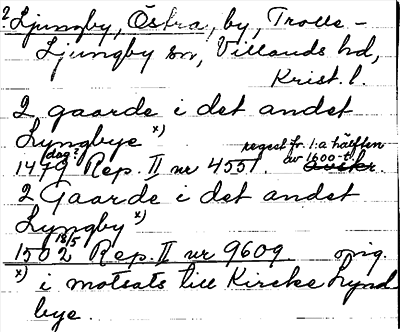 ? Ljungby, Östra, by, Trolle-
Ljungby sn, Villands hd,
Krist. l.
2 gaarde i det andet
Lyngbye x)
1479 dag? Rep. II nr 4551. regest fr. 1:a hälften av 1600-t.
2 Gaarde i det andet
Lyngby x)
1502 18/5 Rep. II nr 9609 orig.
x) i motsats till Kircke Lynd
bye.